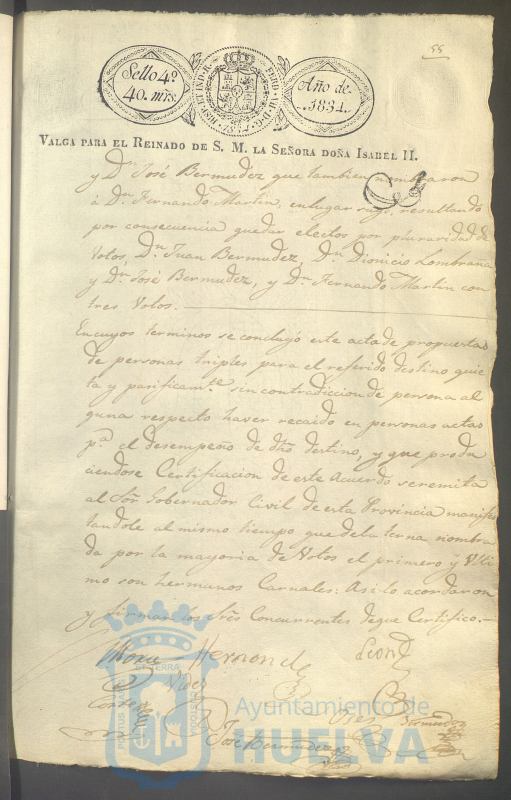 55
Sello 4º
40. mrs.
HISP. ET IND. R.
FERD. VII. D. G.
1834
Año de
1834.
VALGA PARA EL REINADO DE S. M. LA SEÑORA DOÑA ISABEL II.
y Dn. José Bermudez que tambien nombraron
á Dn. Fernando Martin, en lugar suyo, resultando
por consecuencia quedar electos por pluraridad de
Votos, Dn. Juan Bermudez, Dn. Dionicio Lombraña
y Dn. José Bermudez, y Dn. Fernando Martin con
tres Votos.
En cuyos terminos se concluyó este acta de propuestas
de personas triples para el referido destino quie
ta y pasificamte. sin contradiccion de persona al
guna respecto haver recaido en personas actas
pa. el desempeño de dho destino, y que produ
ciendose Certificacion de este Acuerdo se remita
al Sor. Gobernador Civil de esta Provincia manifes
tandole al mismo tiempo que de la terna nombra
da por la mayoria de Votos el primero y Ulti
mo son hermanos Carnales: Asi lo acordaron
y firman los Sres Concurrentes de que Certifico.
Mora Hernandz Leon
Cortes
Bermudez
José Bermudez
PORTUS MARIS
ET TERRÆ
CUSTODIA
Ayuntamiento de
HUELVA